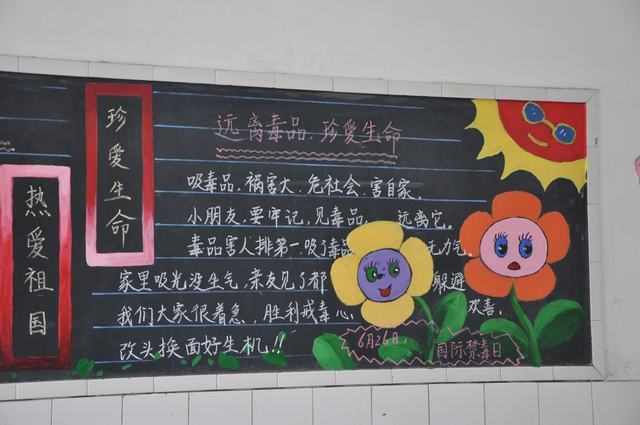 热爱祖国
珍爱生命
远离毒品.珍爱生命
吸毒品.祸害大.危社会.害自家.
小朋友.要牢记.见毒品 远离它。
毒品害人排第一.吸了毒品 无力气。
家里吸光没生气,亲友见了都 躲避
我们大家很着急.胜利戒毒心 欢喜.
改头换面好生机!!
6月26日
国际禁毒日